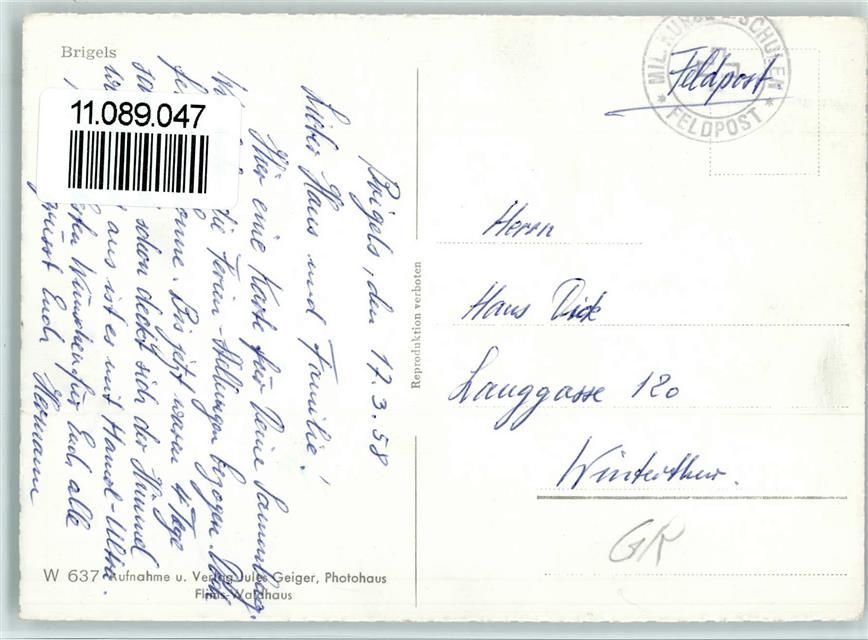 Brigels
11.089.047
Brigels, den 17. 3. 58
Lieber Hans und Familie!
Hier eine Karte für Deine Sammlung.
die Ferien-Stellungen bezogen.
Sonne. Bis jetzt waren 4 Tage
schon deckt sich der Himmel
aus ist es mit Handel-Ultra.
Wünschen für Euch alle
grüsst Euch Hermann
W 637 Aufnahme u. Verlag Jules Geiger, Photohaus
Flims-Waldhaus
Reproduktion verboten
MIL. KURSE & SCHULEN
* FELDPOST *
Feldpost
Herrn
Hans Dick
Langgasse 120
Winterthur.
GR